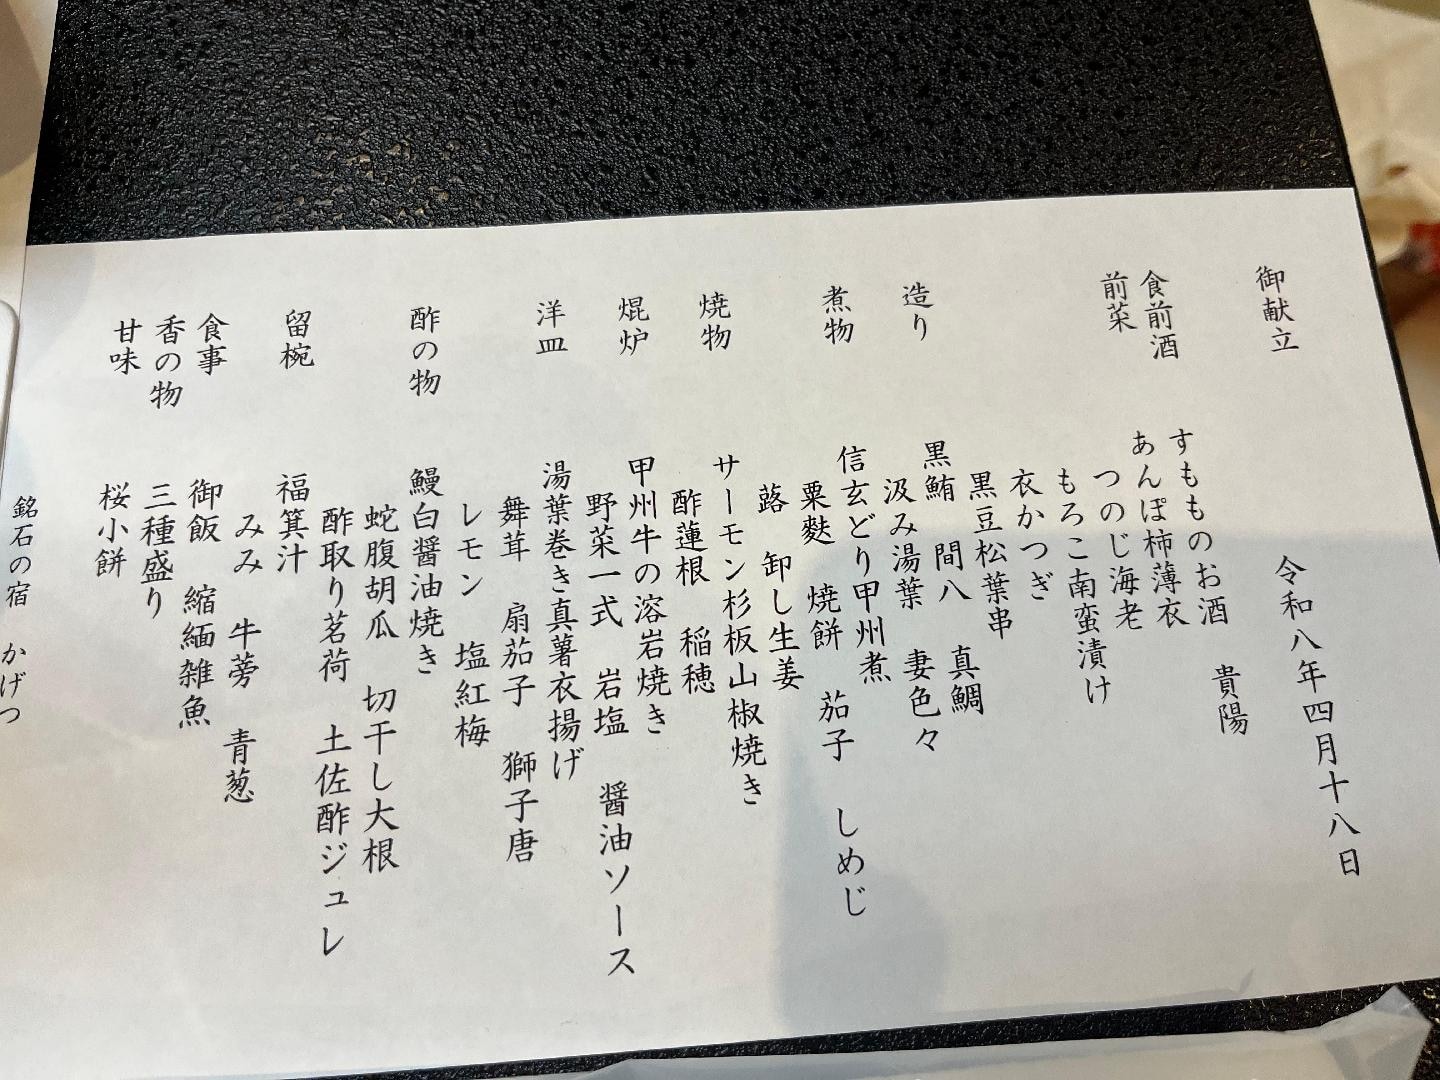 御献立
令和八年四月十八日
食前酒　すもものお酒　貴陽
前菜　あんぽ柿薄衣
つのじ海老
もろこ南蛮漬け
衣かつぎ
黒豆松葉串
造り　黒鮪　間八　真鯛
汲み湯葉　妻色々
煮物　信玄どり甲州煮
粟麩　焼餅　茄子　しめじ
蕗　卸し生姜
焼物　サーモン杉板山椒焼き
酢蓮根　稲穂
焜炉　甲州牛の溶岩焼き
野菜一式　岩塩　醤油ソース
洋皿　湯葉巻き真薯衣揚げ
舞茸　扇茄子　獅子唐
レモン　塩紅梅
酢の物　鰻白醤油焼き
蛇腹胡瓜　切干し大根
酢取り茗荷　土佐酢ジュレ
留椀　福箕汁
みみ　牛蒡　青葱
食事　御飯　縮緬雑魚
香の物　三種盛り
甘味　桜小餅
銘石の宿　かげつ